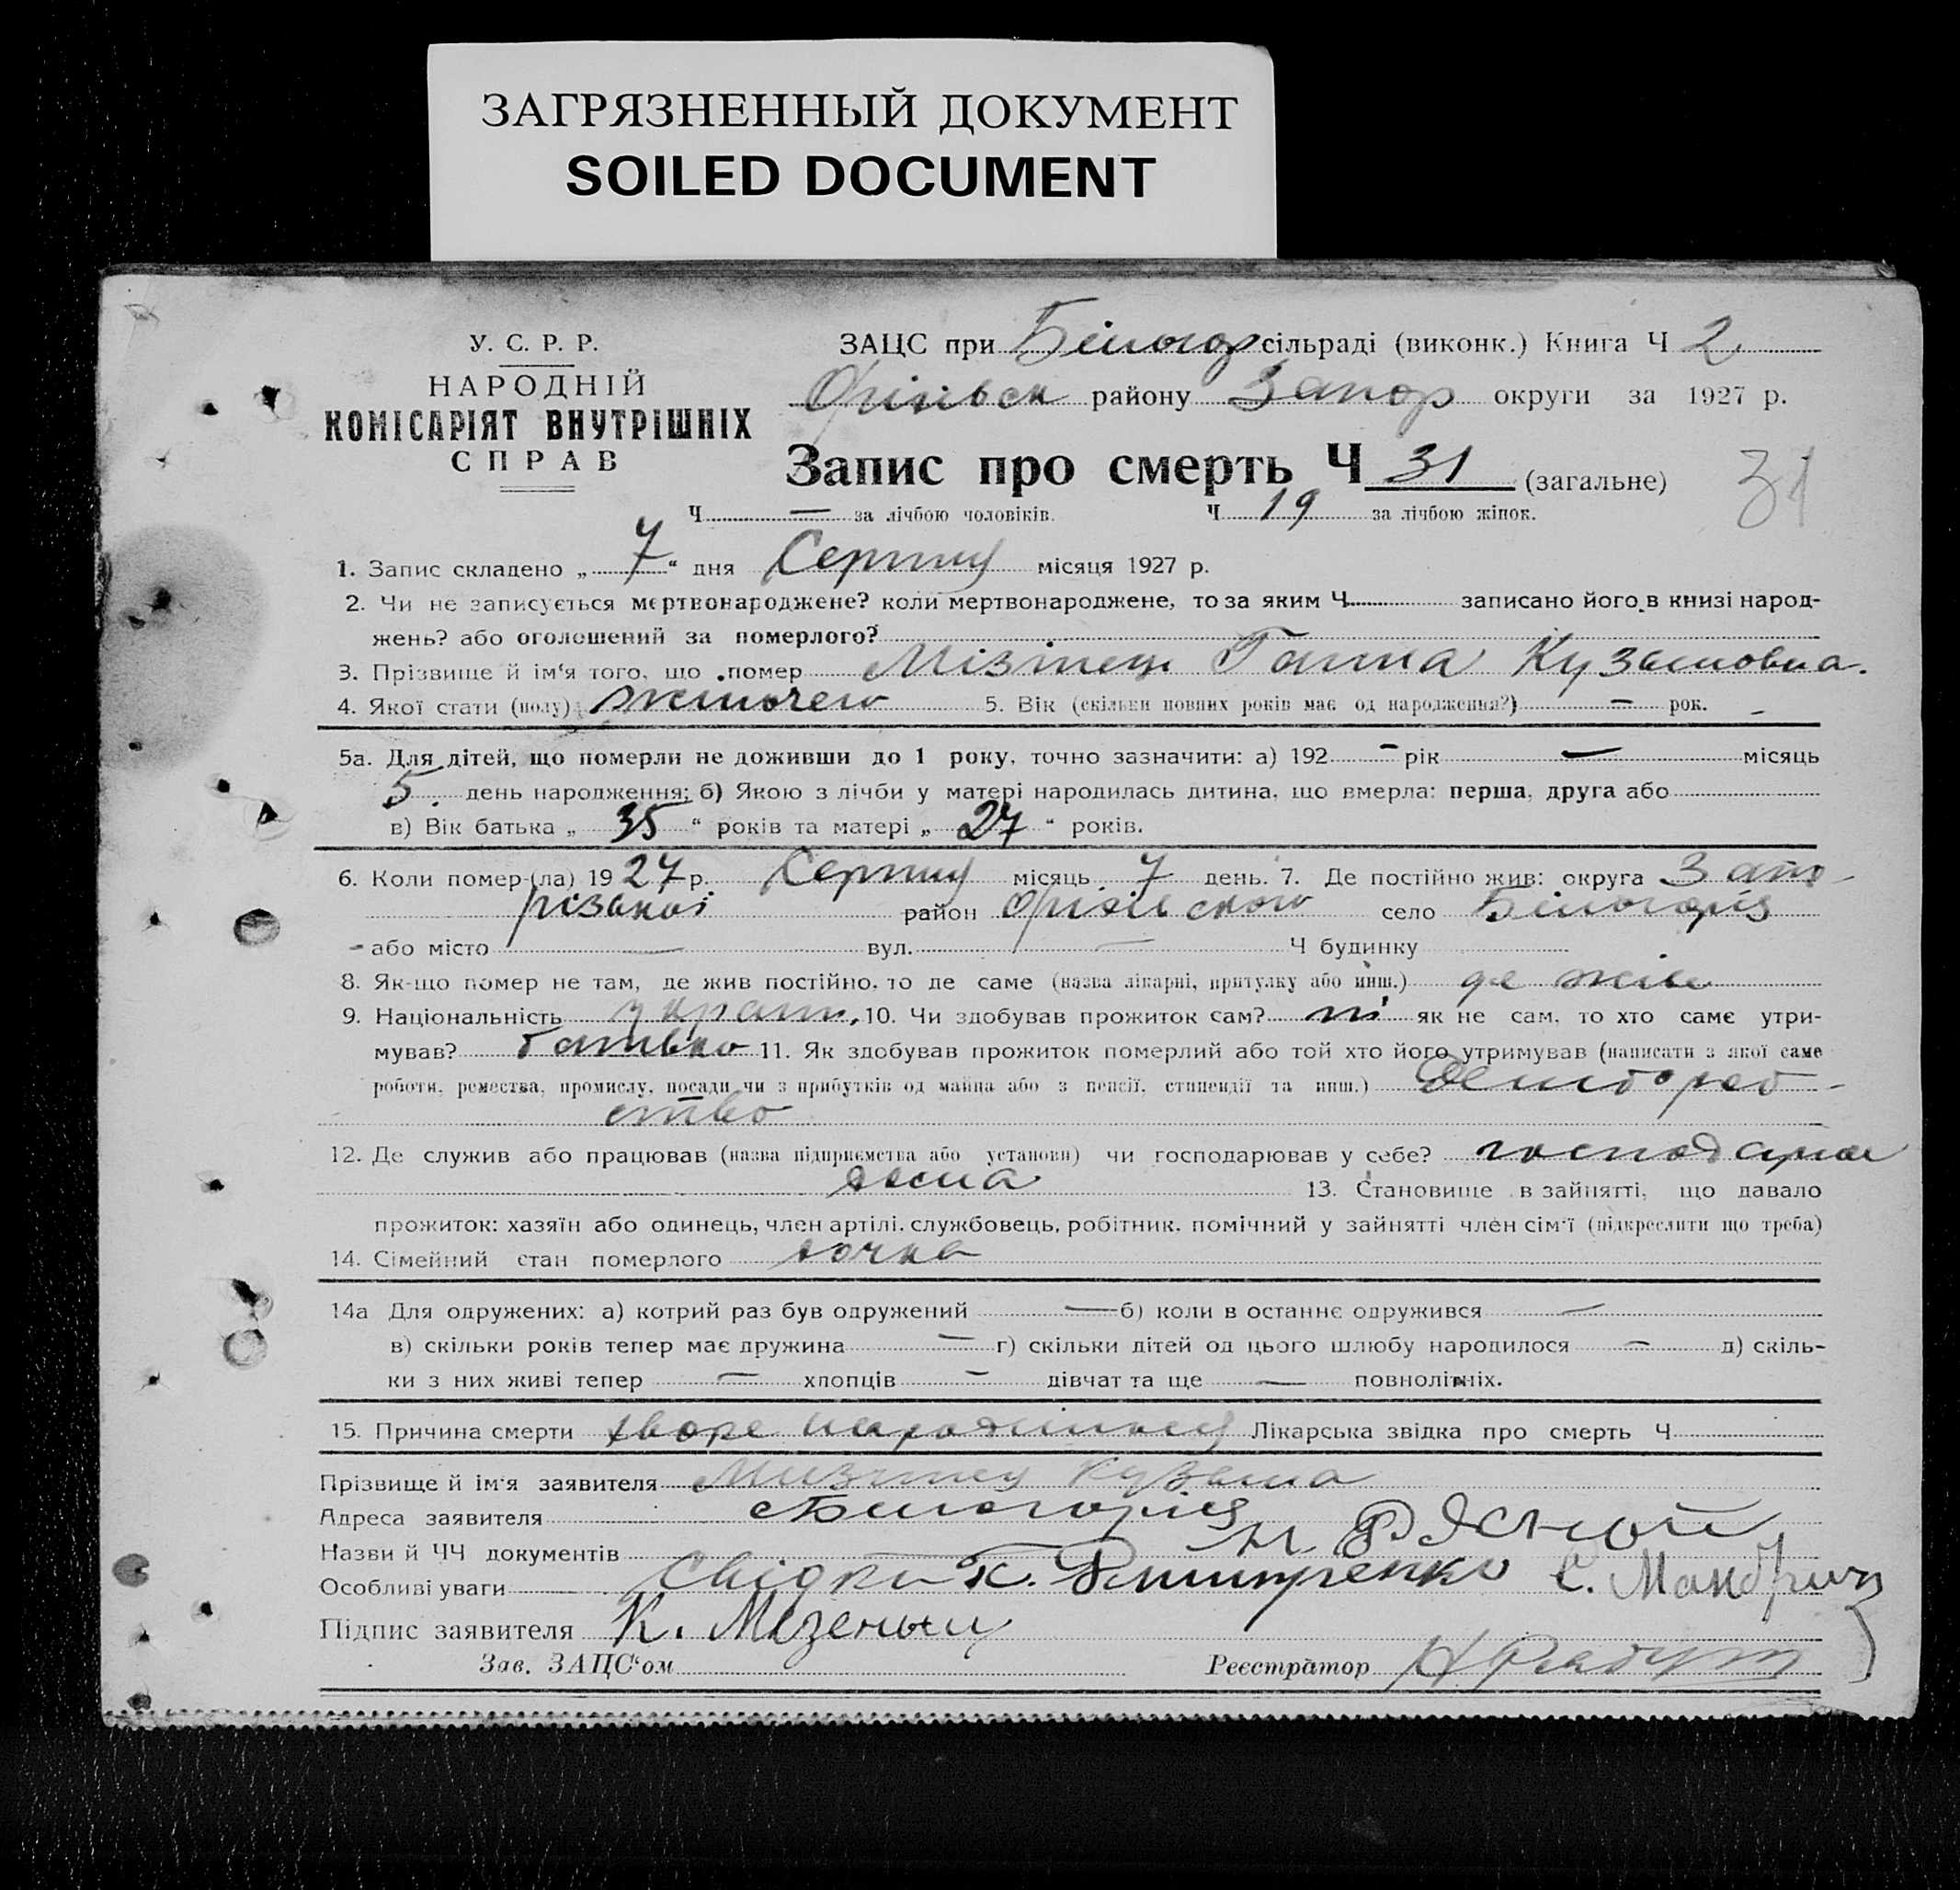 ЗАГРЯЗНЕННЫЙ ДОКУМЕНТ
SOILED DOCUMENT
У. С. Р. Р.
НАРОДНІЙ
КОМІСАРІЯТ ВНУТРІШНІХ
СПРАВ
ЗАЦС при Білогор сільраді (виконк.) Книга Ч 2
Оріхівськ району Запор округи за 1927 р.
Запис про смерть Ч 31 (загальне) 31
Ч — за лічбою чоловіків. Ч 19 за лічбою жінок.
1. Запис складено „ 7 “ дня Серпня місяця 1927 р.
2. Чи не записується мертвонароджене? коли мертвонароджене, то за яким Ч записано його в книзі народ-
жень? або оголошений за померлого?
3. Прізвище й ім‘я того, що помер Мізінець Ганна Кузьмовна.
4. Якої стати (полу) жіночего 5. Вік (скільки повних років має од народження?) — рок. —
5а. Для дітей, що померли не доживши до 1 року, точно зазначити: а) 192 - рік — місяць
5. день народження; б) Якою з лічби у матері народилась дитина, що вмерла: перша, друга або
в) Вік батька „ 35 “ років та матері „ 27 “ років.
6. Коли помер-(ла) 1927 р. Серпня місяць 7 день. 7. Де постійно жив: округа Запо-
різької район Оріхівського село Білогорія
- або місто — вул. — Ч будинку
8. Як-що помер не там, де жив постійно, то де саме (назва лікарні, притулку або инш.) де жив
9. Національність україн. 10. Чи здобував прожиток сам? ні як не сам, то хто саме утри-
мував? батько 11. Як здобував прожиток померлий або той хто його утримував (написати з якої саме
роботи, ремества, промислу, посади чи з прибутків од майна або з пенсії, стипендії та инш.)
ство
12. Де служив або працював (назва підприємства або установи) чи господарював у себе? господарює
дома 13. Становище в зайнятті, що давало
прожиток: хазяїн або одинець, член артілі, службовець, робітник, помічний у зайнятті член сім‘ї (підкреслити що треба)
14. Сімейний стан померлого дочка
14а Для одружених: а) котрий раз був одружений — б) коли в останнє одружився —
в) скільки років тепер має дружина — г) скільки дітей од цього шлюбу народилося — д) скіль-
ки з них живі тепер — хлопців - дівчат та ще — повнолітніх.
15. Причина смерти хворе народилось Лікарська звідка про смерть Ч
Прізвище й ім‘я заявителя Мизинец Кузьма
Адреса заявителя с Білогорія
Назви й ЧЧ документів Н. Рясной
Особливі уваги Свідки К. Дмитренко С. Мандрич
Підпис заявителя К.
Зав. ЗАЦС‘ом Реєстратор